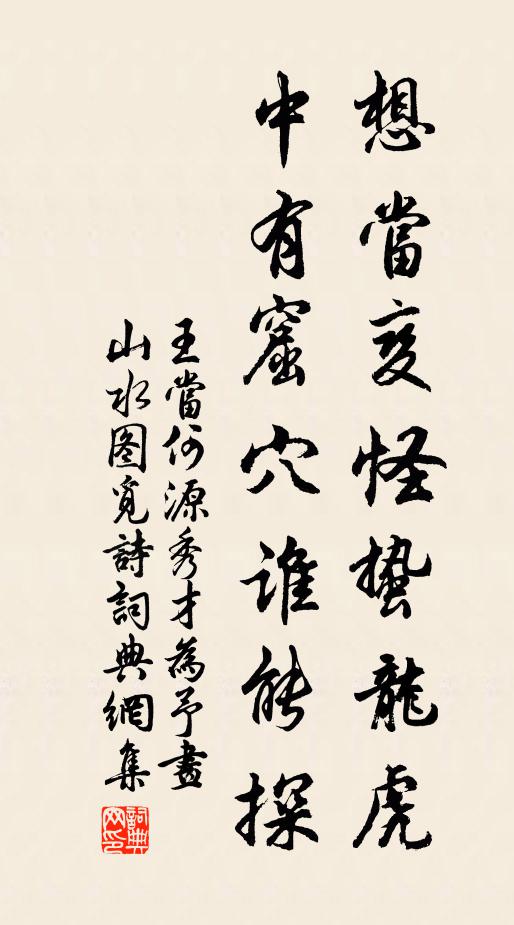 想當变怪蟄龍虎
中有窟穴谁能探
王當何源秀才為予畫
山水图覓詩詞典網集
詞典
网印